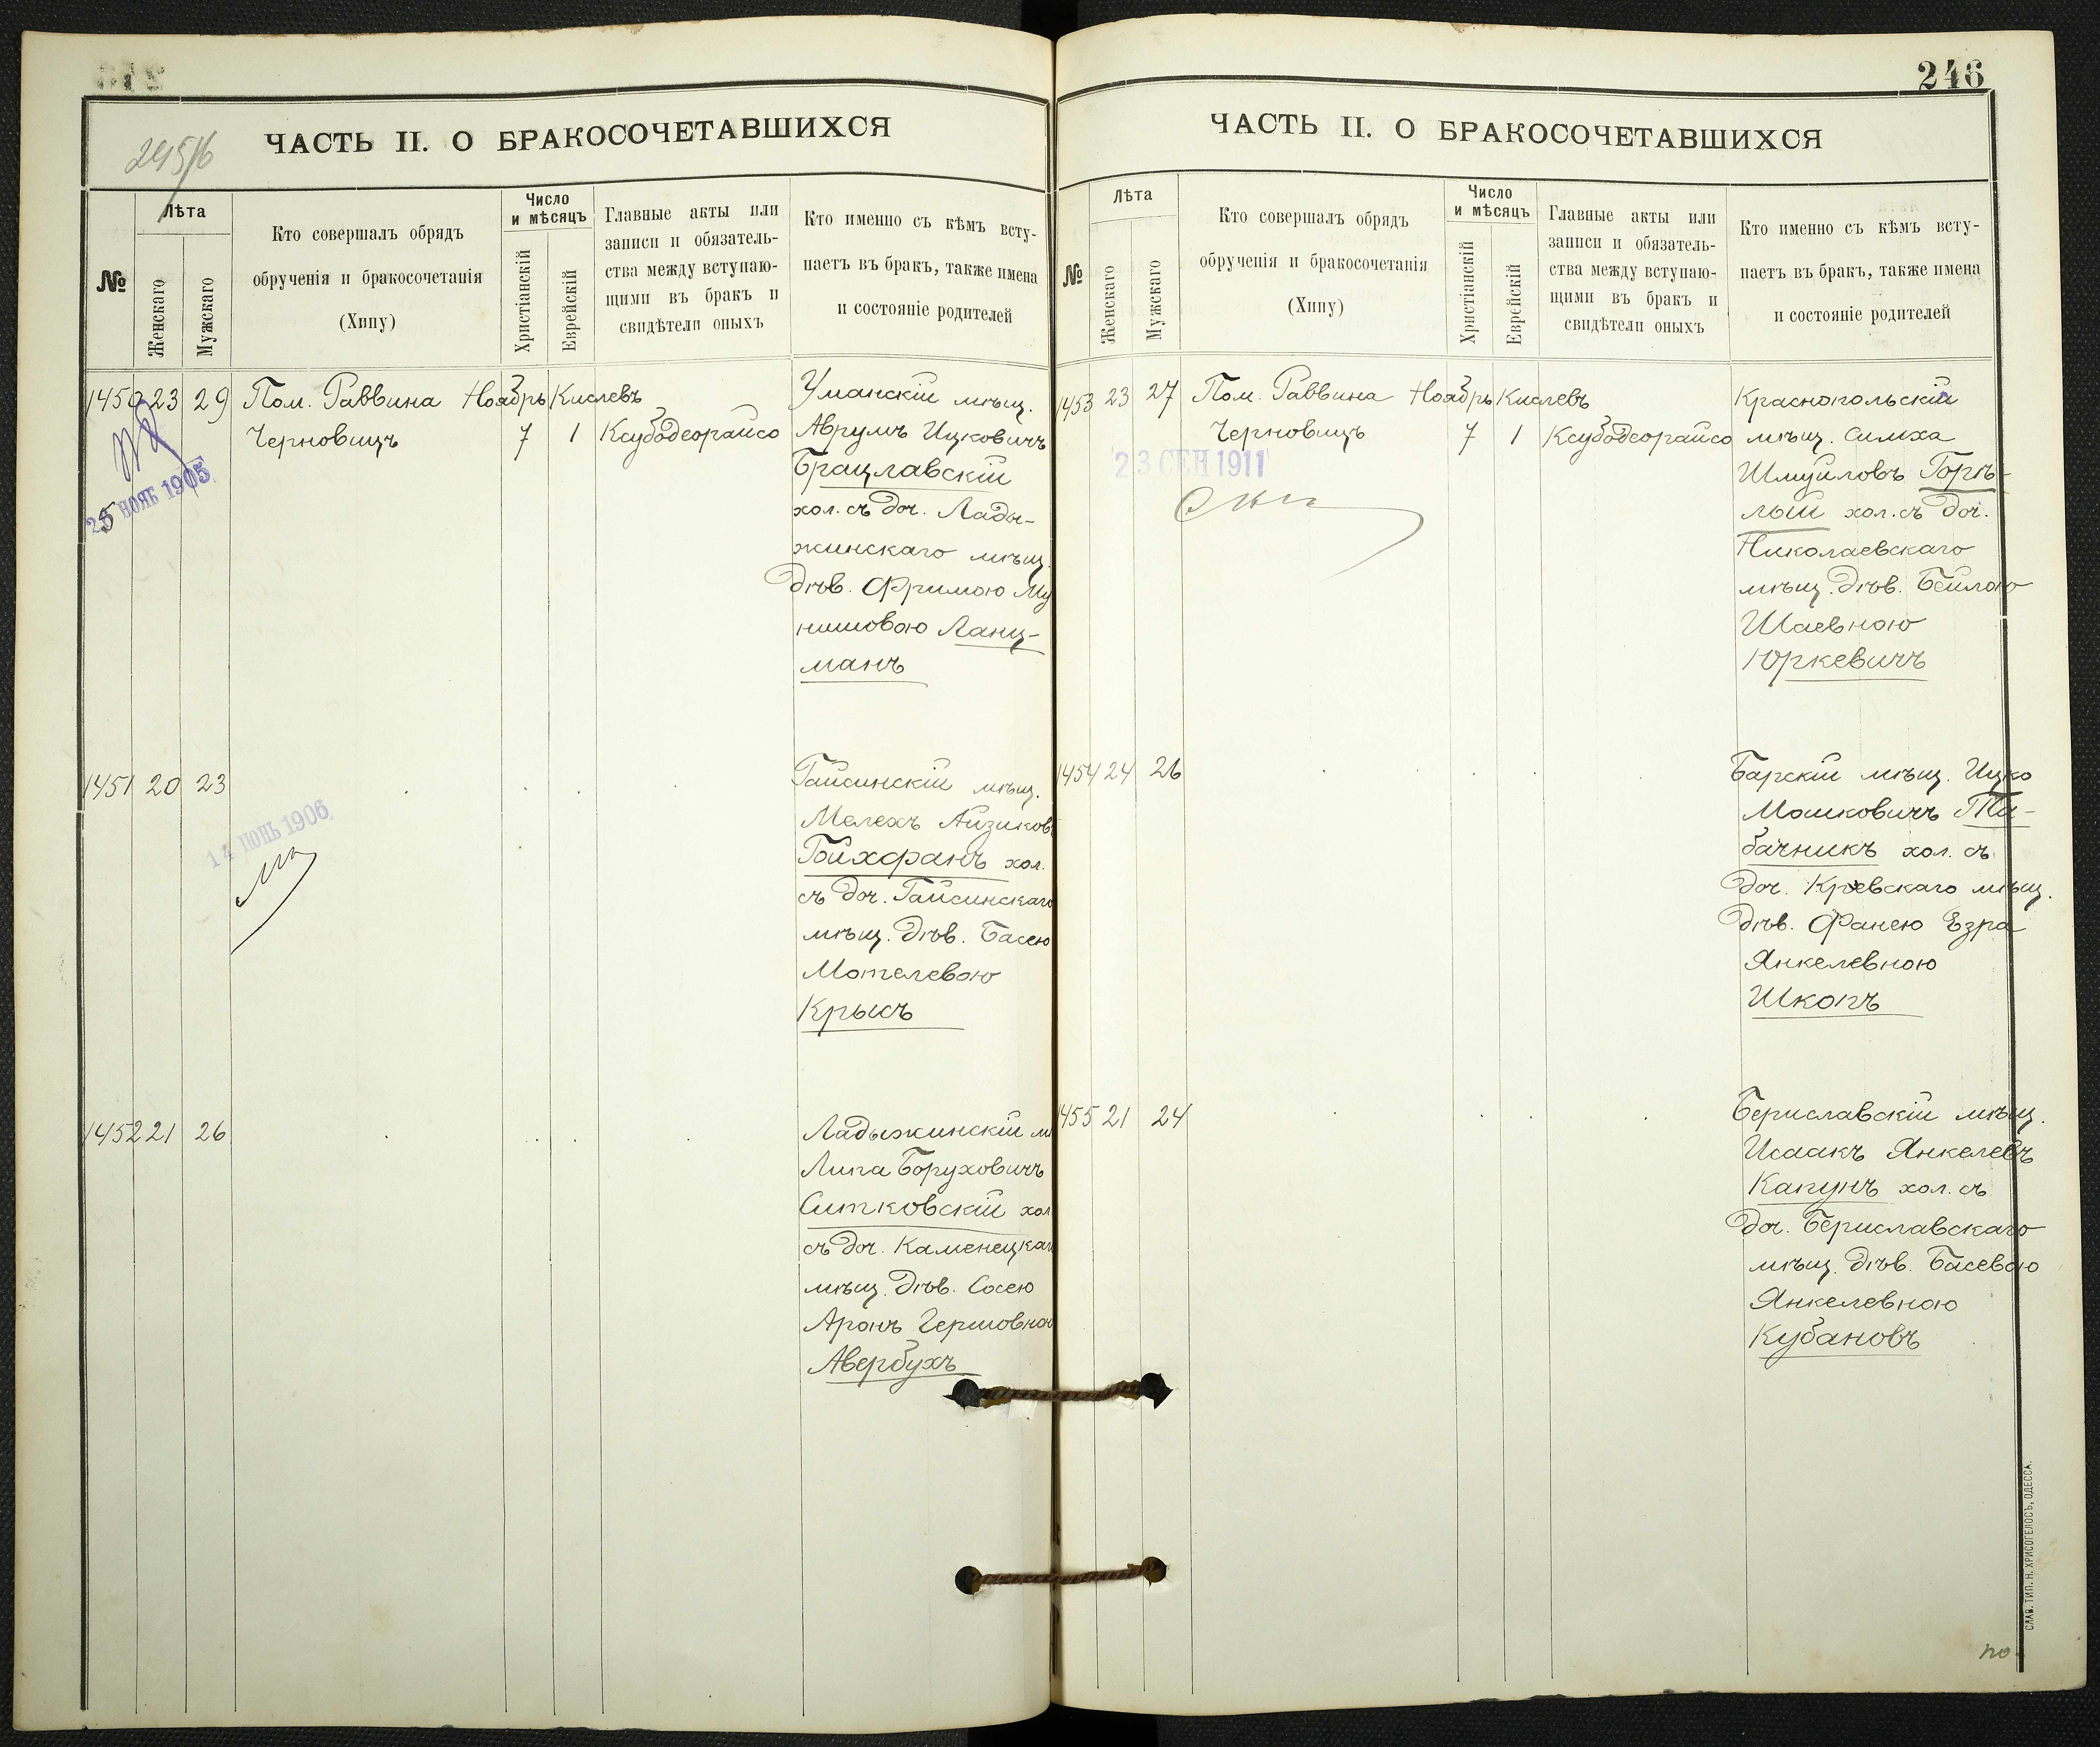 245/6
ЧАСТЬ II. О БРАКОСОЧЕТАВШИХСЯ
№
Лѣта
Женскаго
Мужскаго
Кто совершалъ обрядъ
обрученія и бракосочетанія
(Хипу)
Число
и мѣсяцъ
Христіанскій
Еврейскій
Главные акты или
записи и обязатель-
ства между вступаю-
щими въ бракъ и
свидѣтели оныхъ
Кто именно съ кѣмъ всту-
паетъ въ бракъ, также имена
и состояніе родителей
1450 23 29 Пом. Раввина Ноябрь Кислевъ
Черновицъ 7 1 Ксубодеорайсо
25 НОЯБ 1905
Уманскій мѣщ.
Аврумъ Ицковичъ
Брацлавскій
хол. съ доч. Лады-
жинскаго мѣщ.
дѣв. Фримою Му
нишовою Ланц-
манъ
1451 20 23
14 ІЮНЬ 1906
Гайсинскій мѣщ.
Мелехъ Айзиковъ
Гойхфанъ хол.
съ доч. Гайсинскаго
мѣщ. дѣв. Басею
Мотелевою
Крысъ
1452 21 26
Ладыжинскій м
Липа Боруховичъ
Ситковскій хол
съ доч. Каменецкаг
мѣщ. дѣв. Сосею
Аронъ Гершовною
Авербухъ
246
ЧАСТЬ II. О БРАКОСОЧЕТАВШИХСЯ
№
Лѣта
Женскаго
Мужскаго
Кто совершалъ обрядъ
обрученія и бракосочетанія
(Хипу)
Число
и мѣсяцъ
Христіанскій
Еврейскій
Главные акты или
записи и обязатель-
ства между вступаю-
щими въ бракъ и
свидѣтели оныхъ
Кто именно съ кѣмъ всту-
паетъ въ бракъ, также имена
и состояніе родителей
1453 23 27 Пом. Раввина Ноябрь Кислевъ
Черновицъ 7 1 Ксубодеорайсо
23 СЕН 1911
Краснопольскій
мѣщ. Симха
Шмуиловъ Горѣ-
лый хол. съ доч.
Николаевскаго
мѣщ. дѣв. Бейлою
Шаевною
Юркевичъ
1454 24 26
Барскій мѣщ. Ицко
Мошковичъ Та-
бачникъ хол. съ
доч. Кревскаго мѣщ.
дѣв. Фанею Езра
Янкелевною
Шкопъ
1455 21 24
Бериславскій мѣщ.
Исаакъ Янкелевъ
Капунъ хол. съ
доч. Бериславскаго
мѣщ. дѣв. Басевою
Янкелевною
Кубановъ
СЛАВ. ТИП. Н. ХРИСОГЕЛОСЪ, ОДЕССА.
по